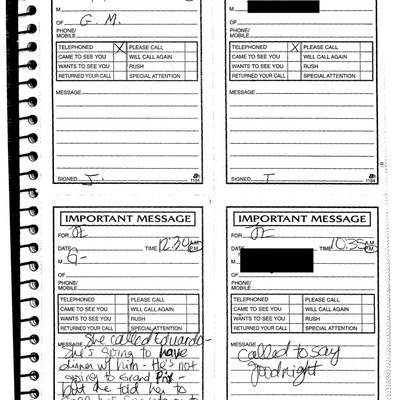 M
OF G. M.
PHONE/
MOBILE
TELEPHONED X PLEASE CALL
CAME TO SEE YOU WILL CALL AGAIN
WANTS TO SEE YOU RUSH
RETURNED YOUR CALL SPECIAL ATTENTION
MESSAGE
SIGNED J.
1184
M
OF
PHONE/
MOBILE
TELEPHONED X PLEASE CALL
CAME TO SEE YOU WILL CALL AGAIN
WANTS TO SEE YOU RUSH
RETURNED YOUR CALL SPECIAL ATTENTION
MESSAGE
SIGNED
1184
IMPORTANT MESSAGE
FOR JE
DATE TIME 12:30 AM PM
M G-
OF
PHONE/
MOBILE
TELEPHONED PLEASE CALL
CAME TO SEE YOU WILL CALL AGAIN
WANTS TO SEE YOU RUSH
RETURNED YOUR CALL SPECIAL ATTENTION
MESSAGE She called Eduardo -
She's going to have
dinner w/ him - He's not
going to Grand Prix -
but he told her to
IMPORTANT MESSAGE
FOR JE
DATE TIME 10:35 AM PM
M
OF
PHONE/
MOBILE
TELEPHONED PLEASE CALL
CAME TO SEE YOU WILL CALL AGAIN
WANTS TO SEE YOU RUSH
RETURNED YOUR CALL SPECIAL ATTENTION
MESSAGE
called to say
goodnight